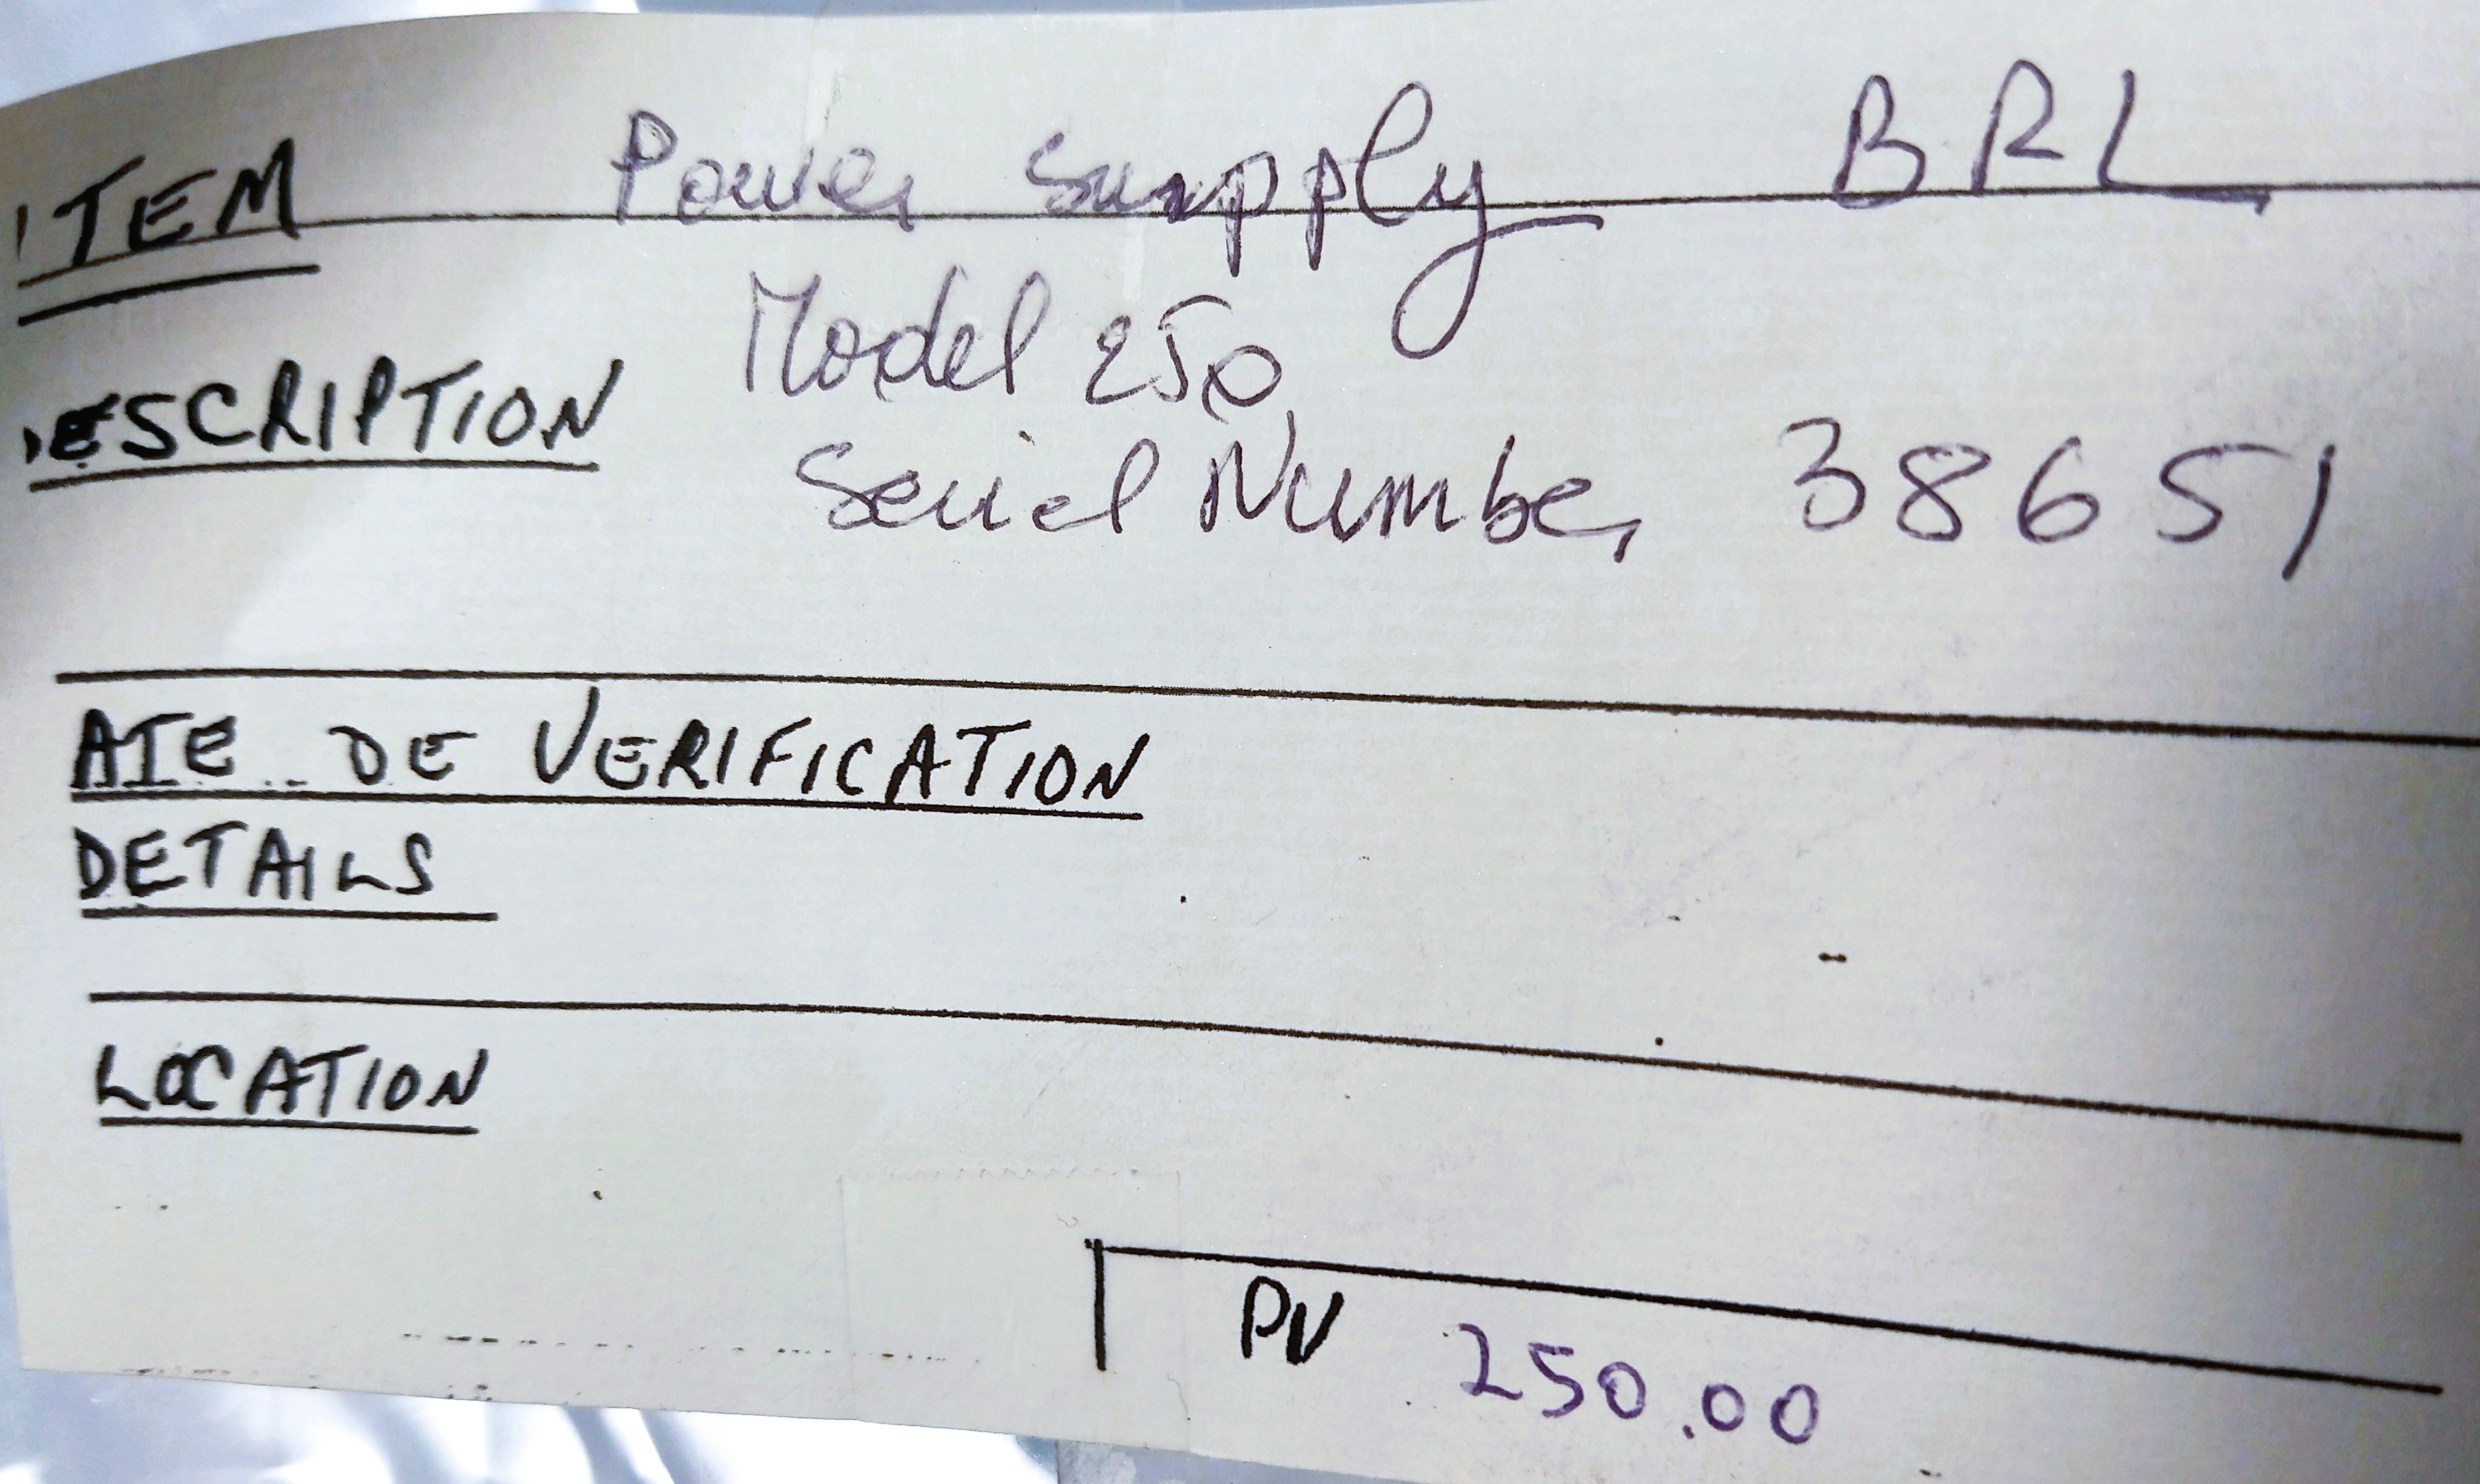 ITEM Power Supply BRL
Model 250
DESCRIPTION
Serial Number 38651
ATE DE VERIFICATION
DETAILS
LOCATION
PV 250.00